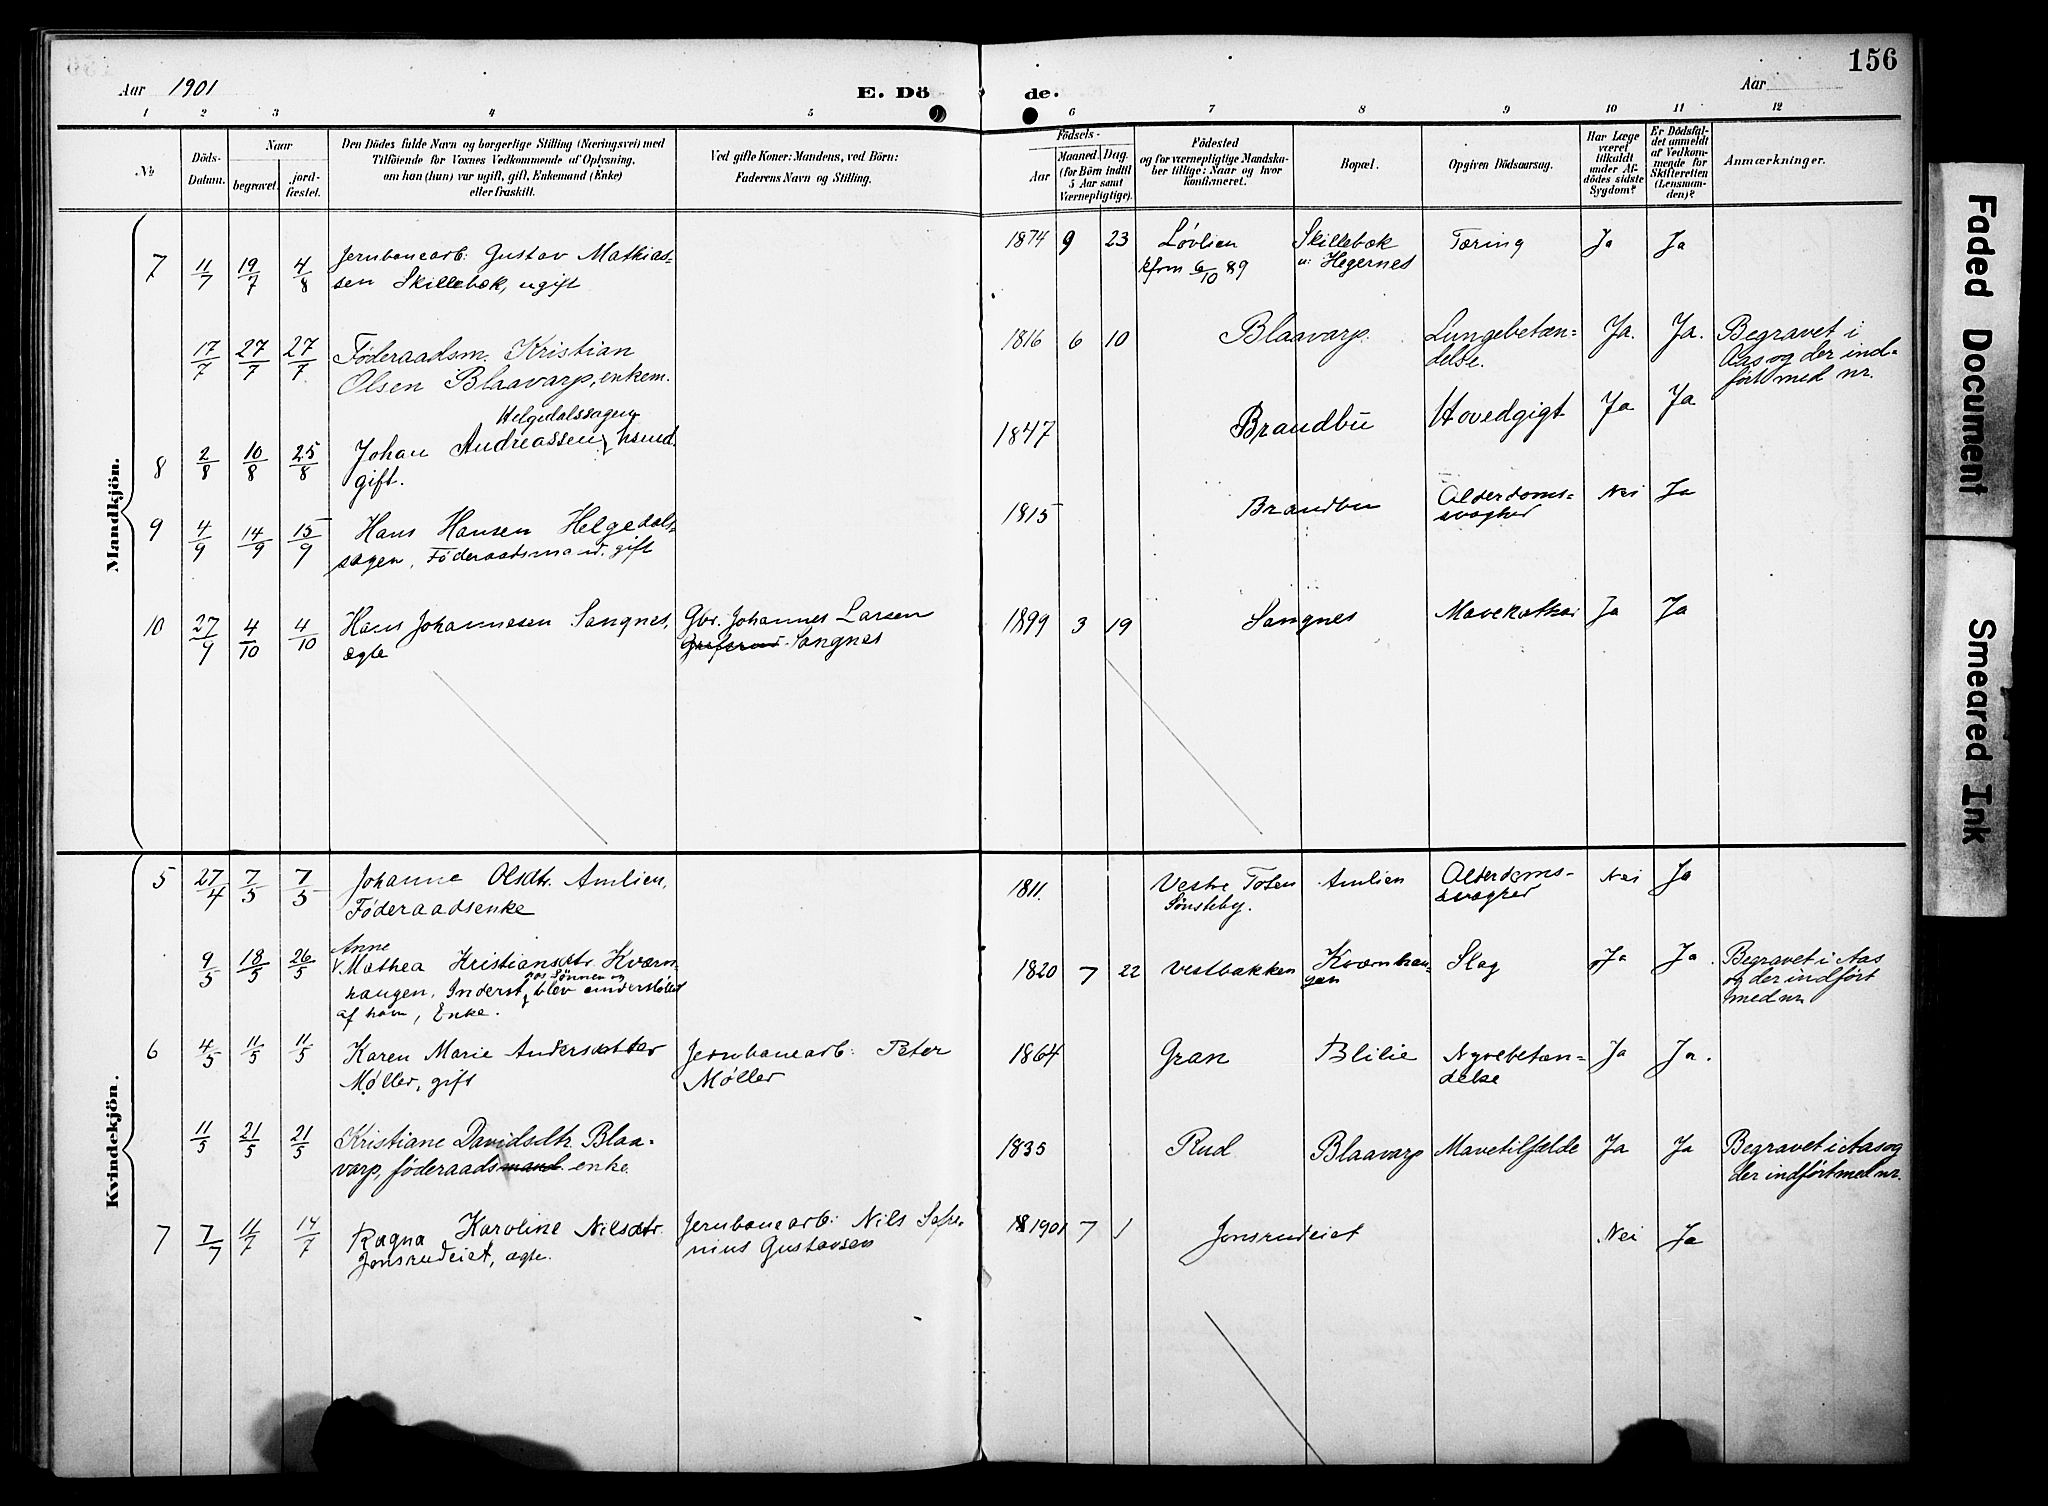 156
Aar 1901
E. Dö de.
Aar
1 2 3 4 5 6 7 8 9 10 11 12
№
Döds-
Datum.
Naar
begravet.
jord-
fæstet.
Den Dödes fulde Navn og borgerlige Stilling (Næringsvei) med
Tilföiende for Voxnes Vedkommende af Oplysning,
om han (hun) var ugift, gift, Enkemand (Enke)
eller fraskilt.
Ved gifte Koner: Mandens, ved Börn:
Faderens Navn og Stilling.
Födsels-
Aar
Maaned. Dag.
(for Börn indtil
5 Aar samt
Værnepligtige).
Födested
og for værnepligtige Mandska-
ber tillige: Naar og hvor
konfirmeret.
Bopæl.
Opgiven Dödsaarsag.
Har Læge
været
tilkaldt
under Af-
dödes sidste
Sygdom?
Er Dödsfal-
det anmeldt
af Vedkom-
mende for
Skifteretten
(Lensman-
den)?
Anmærkninger.
Mandkjön.
7 11/7 19/7 4/8 Jernbanearb: Gustav Mathias-
sen Skillebæk, ugift
1874 9 23 Løvlien
kfrm 6/10 89
Skillebæk
u: Hegernes
Tæring Ja Ja
17/7 27/7 27/7 Föderaadsm. Kristian
Olsen Blaavarp, enkem.
1816 6 10 Blaavarp. Lungebetæn-
delse.
Ja. Ja. Begravet i
Aas og der ind-
ført med nr.
Helgedalssagen
8 2/8 10/8 25/8 Johan Andreassen, hsmd.
gift.
1847 Brandbu Hovedgigt Ja Ja
9 4/9 14/9 15/9 Hans Hansen Helgedals-
sagen, Föderaadsmand. gift
1815 Brandbu Alderdoms-
svaghed
Nei Ja
10 27/9 4/10 4/10 Hans Johannesen Sangnes,
ægte
Gbr. Johannes Larsen
Sangnes
1899 3 19 Sangnes Mavekathar Ja Ja
Kvindekjön.
5 27/4 7/5 7/5 Johanne Olsdtr. Amlien,
Föderaadsenke
1811. Vestre Toten
Sønsteby.
Amlien Alderdoms-
svaghed
Nei Ja
Anne
9/5 18/5 26/5 Mathea Kristiansdtr. Kværn-
hos Sønnen og
haugen, Inderst, blev understøttet
af ham, Enke.
1820 7 22 Vestbakken Kværnhau-
gen
Slag Ja Ja. Begravet i Aas
og der indført
med nr
6 4/5 11/5 11/5 Karen Marie Andersdatter
Møller, gift
Jernbanearb: Peter
Møller
1864 Gran Blilie Nyrebetæn-
delse
Ja Ja.
11/5 21/5 21/5 Kristiane Davidsdtr. Blaa-
varp, føderaadsmand enke.
1835 Rud Blaavarp Mavetilfælde Ja Ja Begravet i Aas og
der indført med nr.
7 7/7 11/7 14/7 Ragna Karoline Nilsdtr.
Jonsrudeiet, ægte.
Jernbanearb: Nils Sefe-
nius Gustavsen
1901 7 1 Jonsrudeiet Nei Ja
Faded Document
Smeared Ink